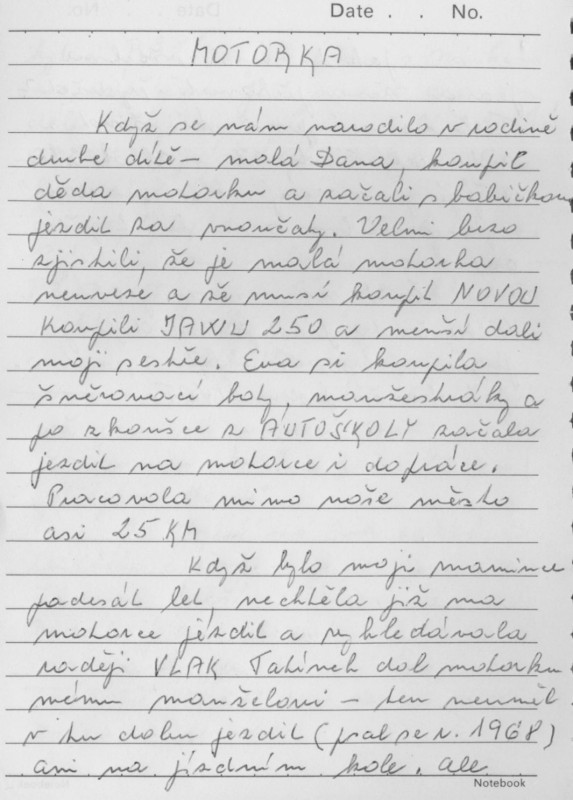 Date . . No.
MOTORKA
Když se nám narodilo v rodině
druhé dítě – malá Dana, koupil
děda motorku a začali s babičkou
jezdit za vnoučaty. Velmi brzo
zjistili, že je malá motorka
neuveze a že musí koupit NOVOU
Koupili JAWU 250 a menší dali
moji sestře. Eva si koupila
šněrovací boty, manžestráky a
po zkoušce z AUTOŠKOLY začala
jezdit na motorce i do práce.
Pracovala mimo naše město
asi 25 KM
Když bylo moji mamince
padesát let, nechtěla již na
motorce jezdit a vyhledávala
raději VLAK Tatínek dal motorku
mému manželovi – ten neuměl
v tu dobu jezdit (psal se r. 1968)
ani na jízdním kole. ale
Notebook